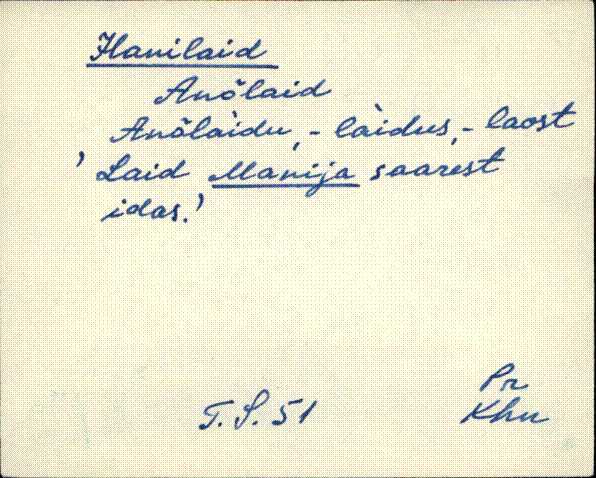 Hanilaid
Anõlaid
Anõlàidu, -làidus, -laost
'Laid Manija saarest
idas.'
Pr
T.S. 51 Khn